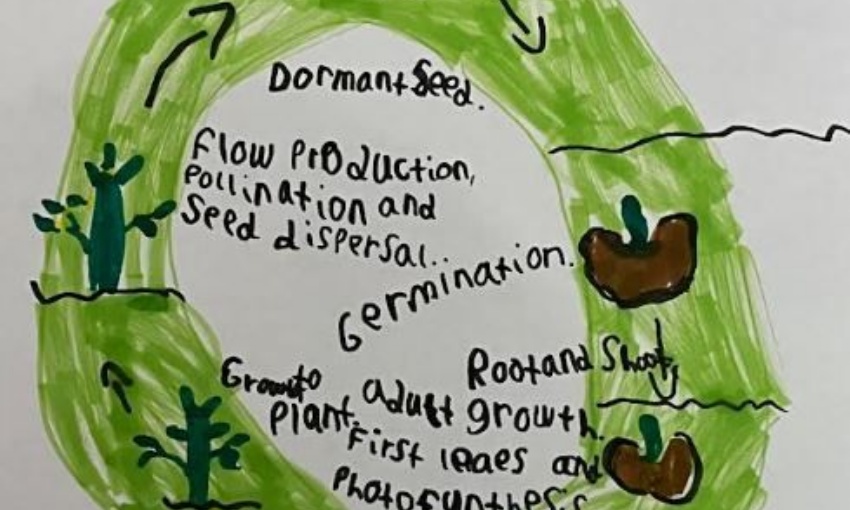 Dormant Seed.
Flow Production,
Pollination and
Seed dispersal..
Germination.
Root and Shoot,
growth.
Growto adult
Plant.
First leaes and
Photosynthesis